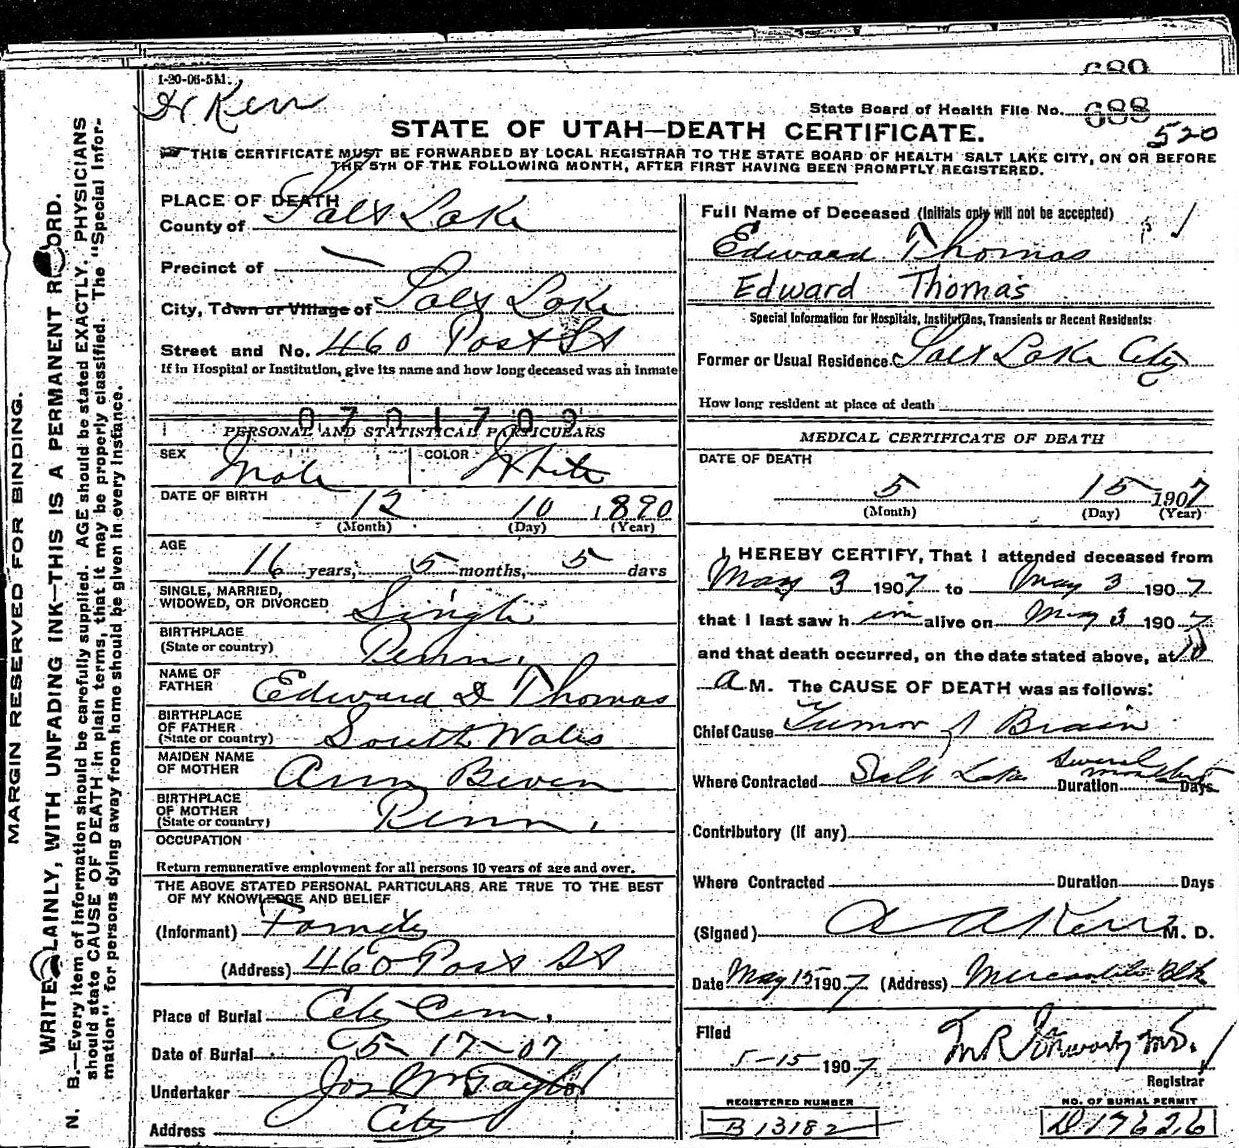 689
1-20-06-5M.
Kerr
State Board of Health File No. 688
520
STATE OF UTAH—DEATH CERTIFICATE.
THIS CERTIFICATE MUST BE FORWARDED BY LOCAL REGISTRAR TO THE STATE BOARD OF HEALTH SALT LAKE CITY, ON OR BEFORE
THE 5TH OF THE FOLLOWING MONTH, AFTER FIRST HAVING BEEN PROMPTLY REGISTERED.
MARGIN RESERVED FOR BINDING.
WRITE PLAINLY, WITH UNFADING INK—THIS IS A PERMANENT RECORD.
N. B.—Every item of information should be carefully supplied. AGE should be stated EXACTLY. PHYSICIANS
should state CAUSE OF DEATH in plain terms, that it may be properly classified. The "Special Infor-
mation" for persons dying away from home should be given in every instance.
PLACE OF DEATH
County of Salt Lake
Precinct of —
City, Town or Village of Salt Lake
Street and No. 460 Post St
If in Hospital or Institution, give its name and how long deceased was an inmate
0701709
PERSONAL AND STATISTICAL PARTICULARS
SEX Male COLOR White
DATE OF BIRTH 12 10 1890
(Month) (Day) (Year)
AGE 16 years, 5 months, 5 days
SINGLE, MARRIED,
WIDOWED, OR DIVORCED Single
BIRTHPLACE
(State or country) Penn.
NAME OF
FATHER Edward D Thomas
BIRTHPLACE
OF FATHER
(State or country) South Wales
MAIDEN NAME
OF MOTHER Ann Beven
BIRTHPLACE
OF MOTHER
(State or country) Penn.
OCCUPATION
Return remunerative employment for all persons 10 years of age and over.
THE ABOVE STATED PERSONAL PARTICULARS ARE TRUE TO THE BEST
OF MY KNOWLEDGE AND BELIEF
(Informant) Family
(Address) 460 Post St
Place of Burial City Cem.
Date of Burial 5-17-07
Undertaker Jos Wm Taylor
Address City
Full Name of Deceased (Initials only will not be accepted)
Edward Thomas
Edward Thomas
Special Information for Hospitals, Institutions, Transients or Recent Residents:
Former or Usual Residence Salt Lake City
How long resident at place of death
MEDICAL CERTIFICATE OF DEATH
DATE OF DEATH
5 15 1907
(Month) (Day) (Year)
I HEREBY CERTIFY, That I attended deceased from
May 3 1907 to May 3 1907
that I last saw h im alive on May 3 1907
and that death occurred, on the date stated above, at 10
A M. The CAUSE OF DEATH was as follows:
Chief Cause Tumor of Brain
Where Contracted Salt Lake Duration Several months Days
Contributory (if any)
Where Contracted Duration Days
(Signed) A A Kerr M. D.
Date May 15 1907 (Address) Mercantile Blk
Filed
5-15-1907
Registrar
REGISTERED NUMBER
B13182
NO. OF BURIAL PERMIT
D17626